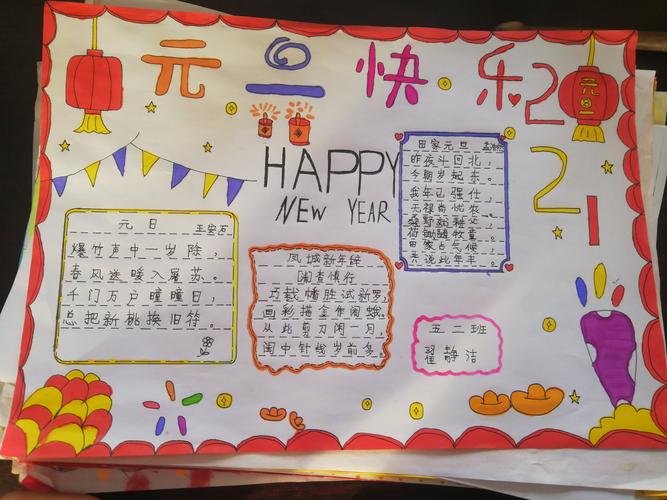 元旦快乐
2021
元旦
HAPPY
NEW YEAR
元日 王安石
爆竹声中一岁除，
春风送暖入屠苏。
千门万户瞳瞳日，
总把新桃换旧符。
凤城新年辞
清查慎行
巧裁幡胜试新罗，
画彩描金作闹蛾。
从此剪刀闲一月，
闺中针线岁前多。
田家元旦
昨夜斗回北，
今朝岁起东。
我年已强仕，
无禄尚忧农。
桑野就耕父，
荷锄随牧童。
田家占气候，
共说此年丰。
五二班
翟静洁